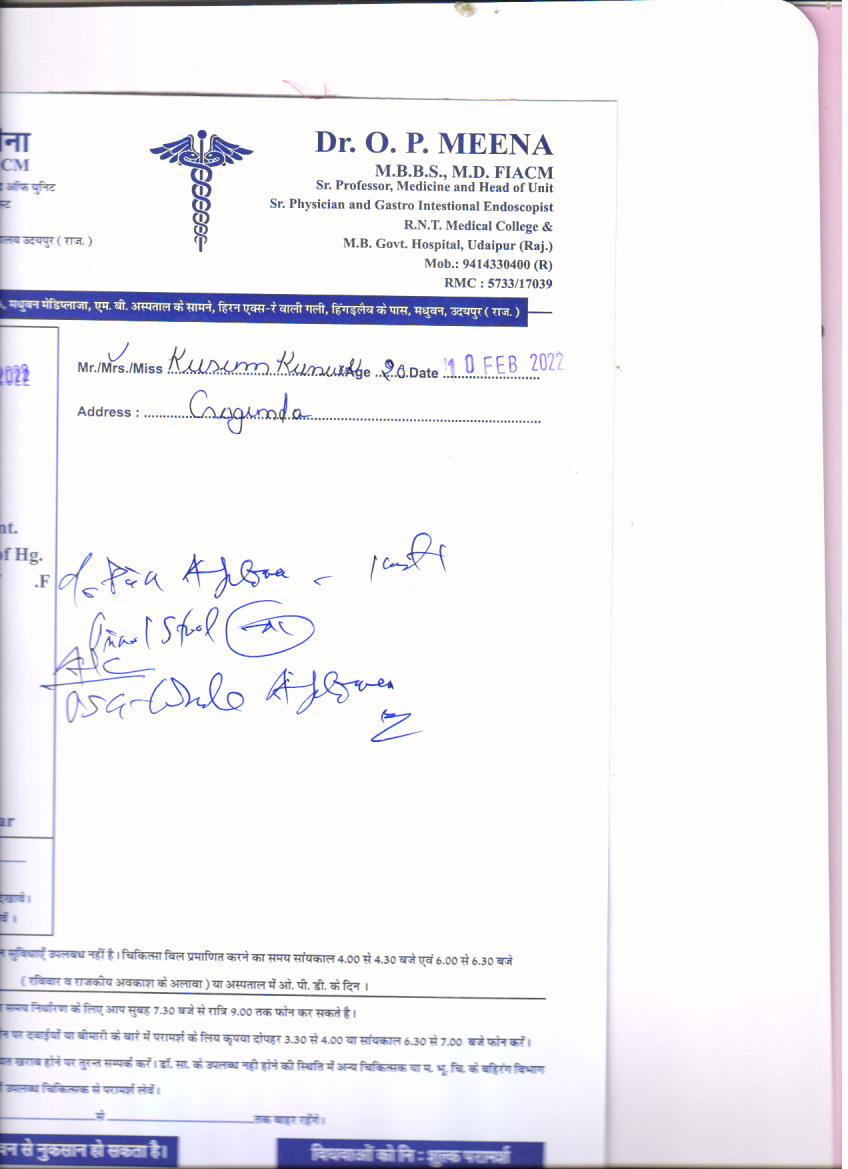 ना
CM
ऑफ युनिट
स्ट
उदयपुर ( राज. )
Dr. O. P. MEENA
M.B.B.S., M.D. FIACM
Sr. Professor, Medicine and Head of Unit
Sr. Physician and Gastro Intestional Endoscopist
R.N.T. Medical College &
M.B. Govt. Hospital, Udaipur (Raj.)
Mob.: 9414330400 (R)
RMC : 5733/17039
मधुबन मेडिप्लाजा, एम. बी. अस्पताल के सामने, हिरन एक्स-रे वाली गली, हिंगड़लैब के पास, मधुबन, उदयपुर ( राज. )
2022
Mr./Mrs./Miss Kusum Age 20 Date 10 FEB 2022
Address : Gogunda
nt.
of Hg.
.F
Pain
Stool
Adv
USG - Whole Abdomen
ar
देखावें।
वें ।
सुविधाएँ उपलबध नहीं है। चिकित्सा बिल प्रमाणित करने का समय सांयकाल 4.00 से 4.30 बजे एवं 6.00 से 6.30 बजे
( रविवार व राजकीय अवकाश के अलावा ) या अस्पताल में ओ. पी. डी. के दिन ।
समय निर्धारण के लिए आप सुबह 7.30 बजे से रात्रि 9.00 तक फोन कर सकते है।
पर दवाईयों या बीमारी के बारे में परामर्श के लिय कृपया दोपहर 3.30 से 4.00 या सांयकाल 6.30 से 7.00 बजे फोन करें।
खराब होने पर तुरन्त सम्पर्क करें। डॉ. सा. के उपलब्ध नही होने की स्थिति में अन्य चिकित्सक या म. भू. चि. के बहिरंग विभाग
उपलब्ध चिकित्सक से परामर्श लेवें।
से तक बाहर रहेंगे।
वन से नुकसान हो सकता है।
विधवाओं को नि : शुल्क परामर्श